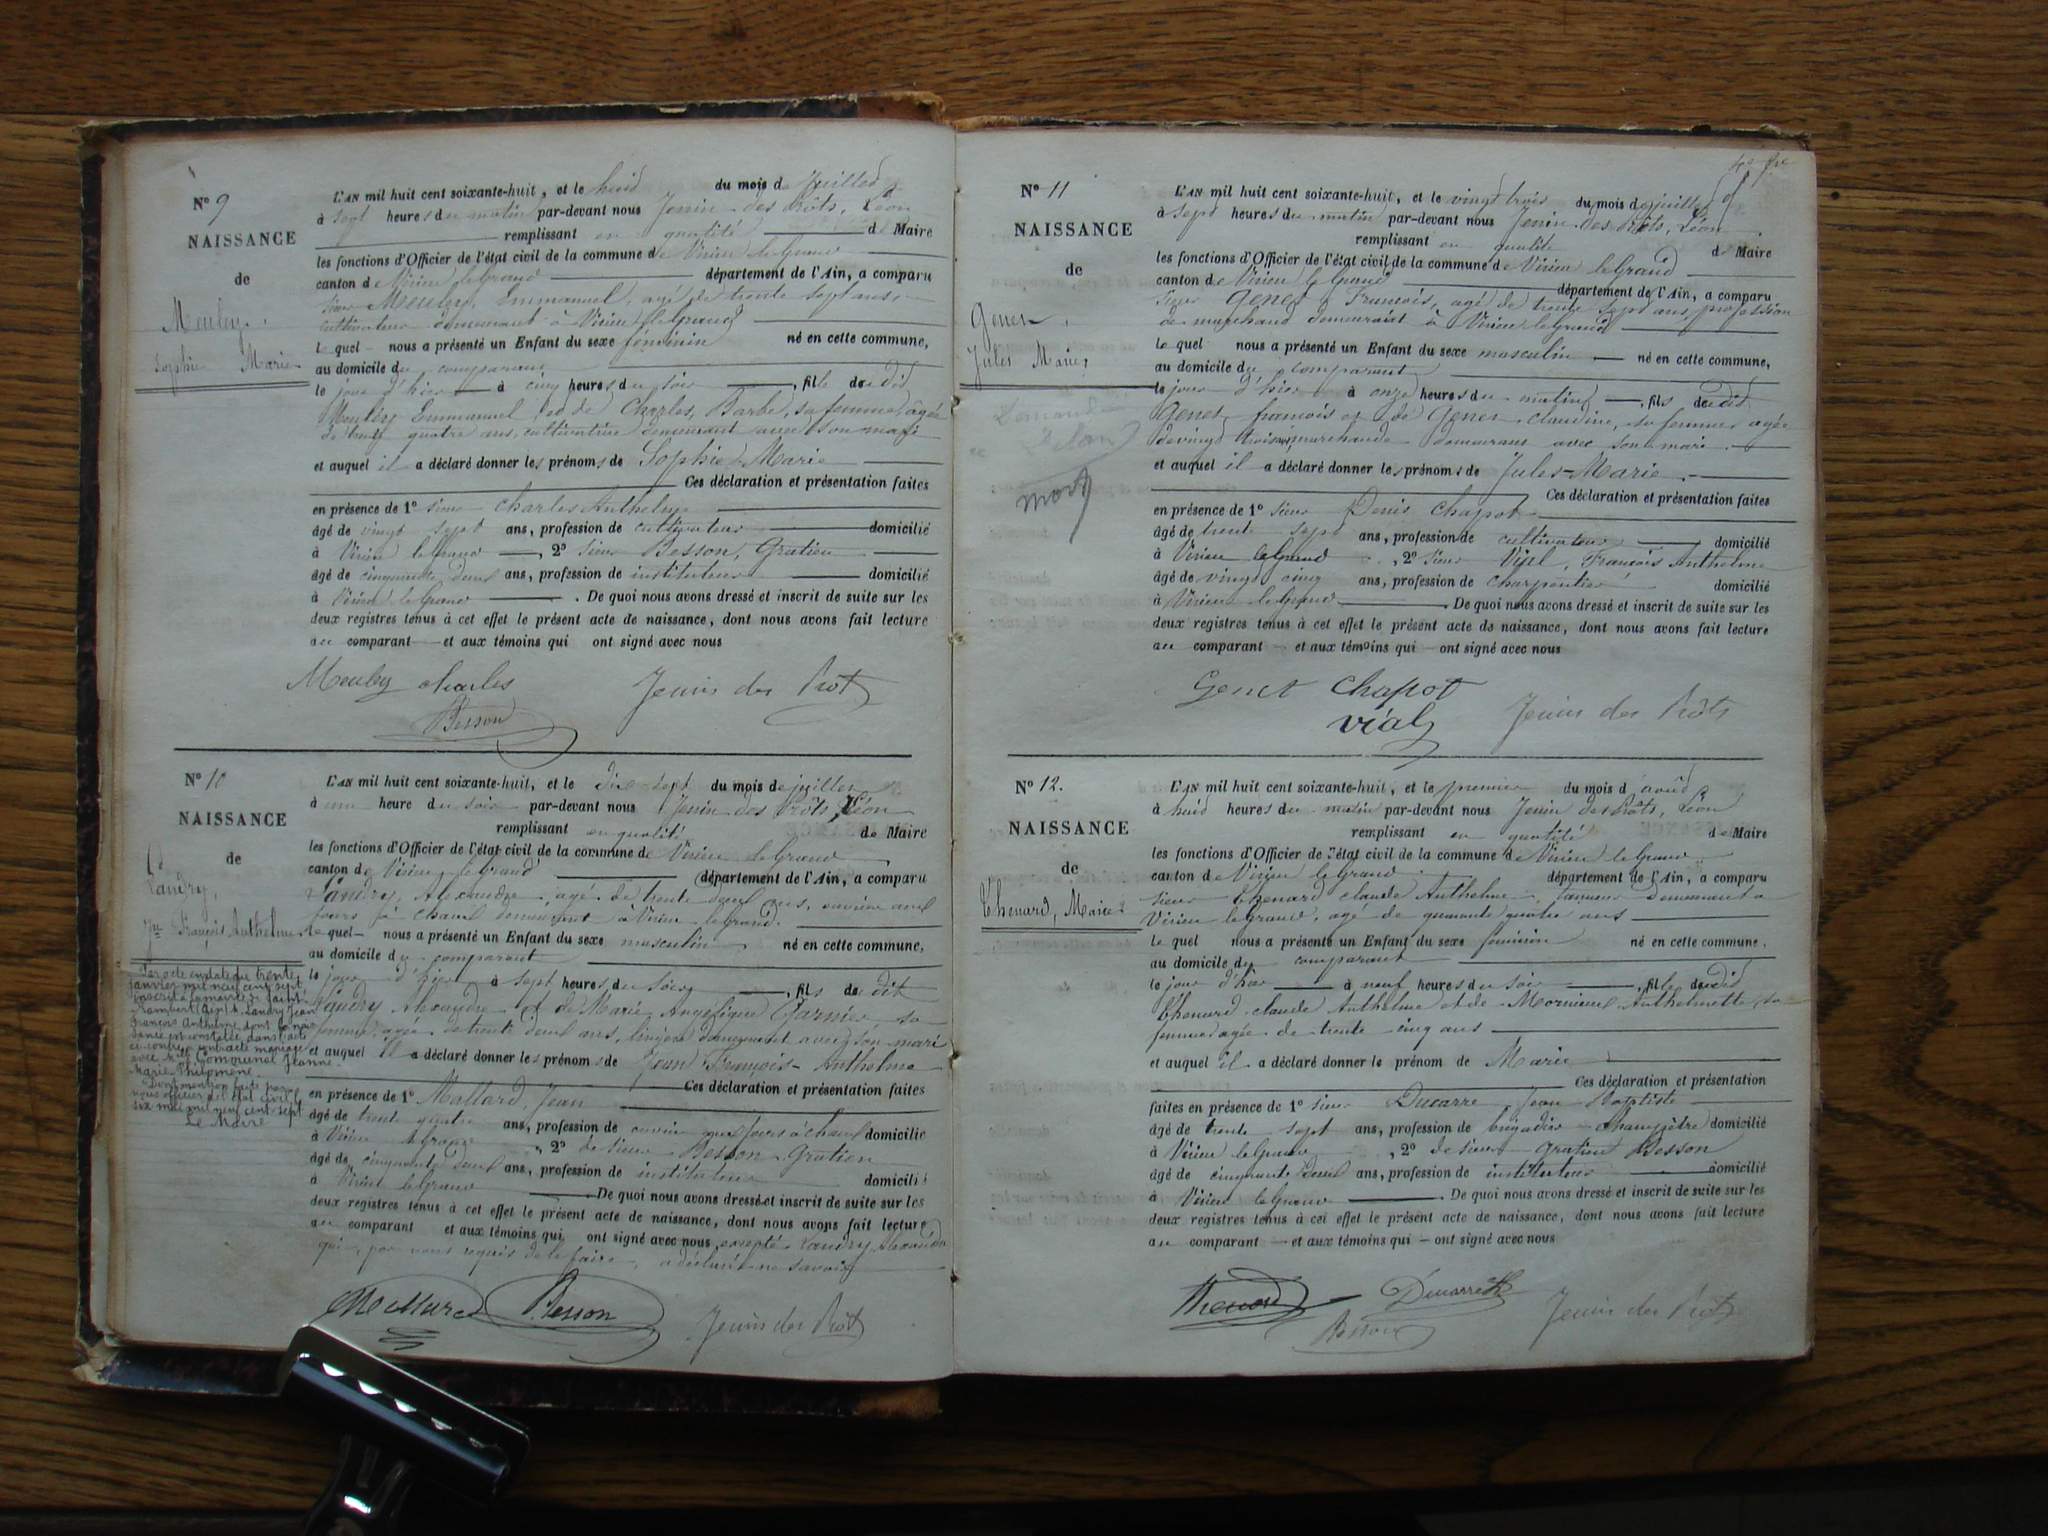 Nº 9
NAISSANCE
de
Meuley.
Sophie Marie
L'AN mil huit cent soixante-huit, et le huit du mois de Juillet
à sept heures du matin par-devant nous Jenin des Prôts, Léon
remplissant en qualité de Maire
les fonctions d'Officier de l'état civil de la commune de Virieu le Grand
canton de Virieu le Grand département de l'Ain, a comparu
sieur Meuley, Emmanuel, agé de trente sept ans
cultivateur demeurant à Virieu le Grand
le quel nous a présenté un Enfant du sexe féminin né en cette commune,
au domicile du comparant
le jour d'hier à cinq heures du soir, fille de dit
Meuley Emmanuel et de Charles, Barbe, sa femme, âgée
de quatre ans, cultivatrice demeurant avec son mari
et auquel il a déclaré donner les prénoms de Sophie Marie
Ces déclaration et présentation faites
en présence de 1º sieur Charles Anthelme
âgé de vingt sept ans, profession de cultivateur domicilié
à Virieu le Grand, 2º sieur Besson, Gratien
âgé de cinquante deux ans, profession de instituteur domicilié
à Virieu le Grand. De quoi nous avons dressé et inscrit de suite sur les
deux registres tenus à cet effet le présent acte de naissance, dont nous avons fait lecture
au comparant et aux témoins qui ont signé avec nous
Meuley Charles Jenin des Prôts
Besson
Nº 10
NAISSANCE
de
Landry,
Jn François Anthelme
Par acte en date du trente
janvier mil neuf cent sept
inscrit à la mairie de Saint
Rambert (Ain) Landry Jean
François Anthelme dont la nais
sance est constatée dans l'acte
ci-contre a contracté mariage
avec Melle Communal Jeanne
Marie Philomène.
Dont mention faite par
nous officier de l'état civil le
six mai mil neuf cent sept
Le Maire
L'AN mil huit cent soixante-huit, et le dix-sept du mois de juillet
à une heure du soir par-devant nous Jenin des Prôts, Léon
remplissant en qualité de Maire
les fonctions d'Officier de l'état civil de la commune de Virieu le Grand
canton de Virieu le Grand département de l'Ain, a comparu
Landry, Alexandre, agé de trente deux ans, ouvrier aux
fours à chaux demeurant à Virieu le Grand.
le quel nous a présenté un Enfant du sexe masculin né en cette commune,
au domicile du comparant
le jour d'hier à sept heures du soir, fils de dit
Landry Alexandre et de Marie Angélique Garnier sa
femme agée de trente deux ans, lingère demeurant avec son mari
et auquel il a déclaré donner les prénoms de Jean François Anthelme
Ces déclaration et présentation faites
en présence de 1º Mallard, Jean
âgé de trente quatre ans, profession de ouvrier aux fours à chaux domicilié
à Virieu le Grand, 2º de sieur Besson Gratien
âgé de cinquante deux ans, profession de instituteur domicilié
à Virieu le Grand. De quoi nous avons dressé et inscrit de suite sur les
deux registres tenus à cet effet le présent acte de naissance, dont nous avons fait lecture
au comparant et aux témoins qui ont signé avec nous, excepté Landry Alexandre
qui, par nous requis de le faire, a déclaré ne savoir
Mallard Besson Jenin des Prôts
Nº 11
NAISSANCE
de
Genet,
Jules Marie
mort
L'AN mil huit cent soixante-huit, et le vingt trois du mois de juillet
à sept heures du matin par-devant nous Jenin des Prôts, Léon
remplissant en qualité de Maire
les fonctions d'Officier de l'état civil de la commune de Virieu le Grand
canton de Virieu le Grand département de l'Ain, a comparu
sieur Genet François, agé de trente sept ans, profession
de marchand demeurant à Virieu le Grand
le quel nous a présenté un Enfant du sexe masculin né en cette commune,
au domicile du comparant
le jour d'hier à onze heures du matin, fils de dit
Genet françois et de Genet claudine, sa femme agée
de vingt trois ans, marchande demeurant avec son mari.
et auquel il a déclaré donner les prénoms de Jules-Marie
Ces déclaration et présentation faites
en présence de 1º sieur Denis Chapot
âgé de trente sept ans, profession de cultivateur domicilié
à Virieu le Grand, 2º sieur Vial, François Anthelme
âgé de vingt cinq ans, profession de charpentier domicilié
à Virieu le Grand. De quoi nous avons dressé et inscrit de suite sur les
deux registres tenus à cet effet le présent acte de naissance, dont nous avons fait lecture
au comparant et aux témoins qui ont signé avec nous
Genet Chapot
Vial Jenin des Prôts
Nº 12.
NAISSANCE
de
Thenard, Marie
L'AN mil huit cent soixante-huit, et le premier du mois d'août
à huit heures du matin par-devant nous Jenin des Prôts, Léon
remplissant en qualité de Maire
les fonctions d'Officier de l'état civil de la commune de Virieu le Grand
canton de Virieu le Grand département de l'Ain, a comparu
sieur Thenard claude Anthelme, tanneur demeurant à
Virieu le Grand, agé de quarante quatre ans
le quel nous a présenté un Enfant du sexe féminin né en cette commune.
au domicile du comparant
le jour d'hier à neuf heures du soir, fille de dit
Thenard claude Anthelme et de Mornieux Anthelmette, sa
femme agée de trente cinq ans
et auquel il a déclaré donner le prénom de Marie
Ces déclaration et présentation
faites en présence de 1º sieur Ducarre Jean Baptiste
âgé de trente sept ans, profession de brigadier champêtre domicilié
à Virieu le Grand, 2º de sieur Gratien Besson
âgé de cinquante deux ans, profession de instituteur domicilié
à Virieu le Grand. De quoi nous avons dressé et inscrit de suite sur les
deux registres tenus à cet effet le présent acte de naissance, dont nous avons fait lecture
au comparant et aux témoins qui ont signé avec nous
Thenard Ducarre
Besson Jenin des Prôts